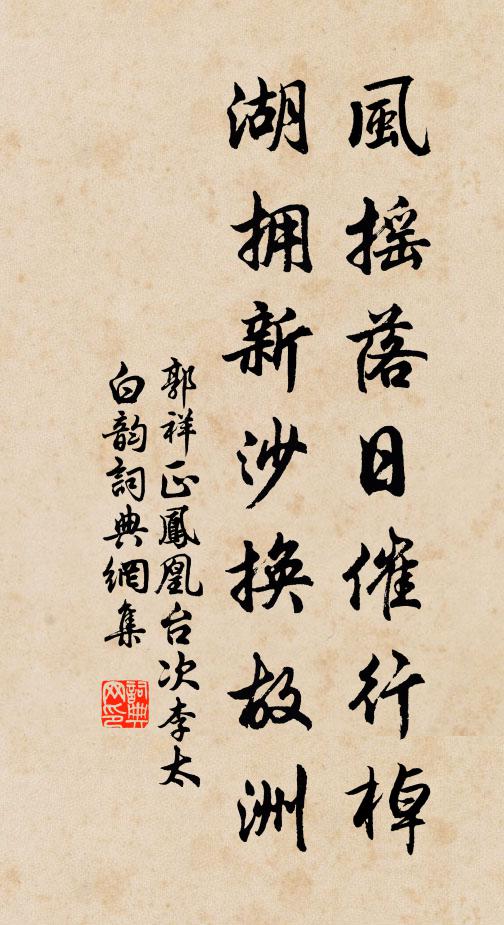 風摇落日催行棹
湖拥新沙換故洲
郭祥正鳳凰台次李太
白韵詞典網集
詞典
网印